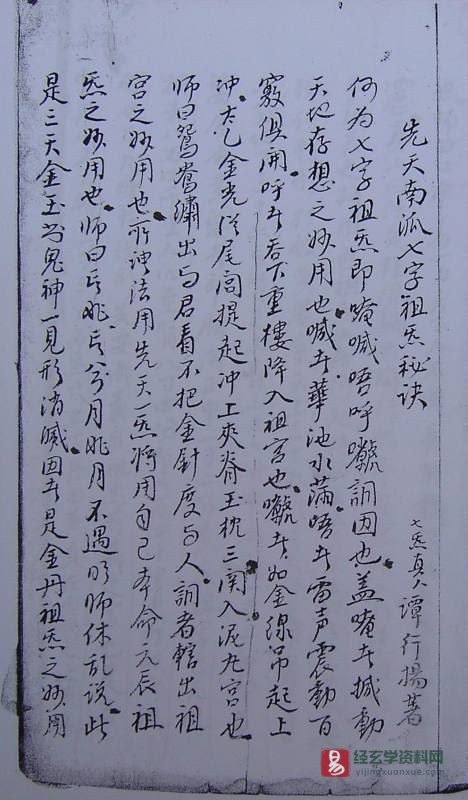 先天南派七字祖炁秘诀
七炁真人譚行揚著
何为七字祖炁即唵㖑唔呼囐詷因也盖唵者撼動
天地存想之妙用也㖑者華池水滿唔者雷声震動百
竅俱開呼者吞下重樓降入祖宫也囐者如金線吊起上
冲太乙金光從尾閭提起冲上夾脊玉枕三関入泥丸宫也
師曰鴛鴦繡出与君看不把金針度与人詷者轄出祖
宫之妙用也所谓法用先天一炁將用自己本命元辰祖
炁之妙用也師曰兮月兆月不遇明师休乱說此
是三天金玉为鬼神一見形消滅因者是金丹祖炁之妙用
经玄学资料网
yijingxuanxue.com